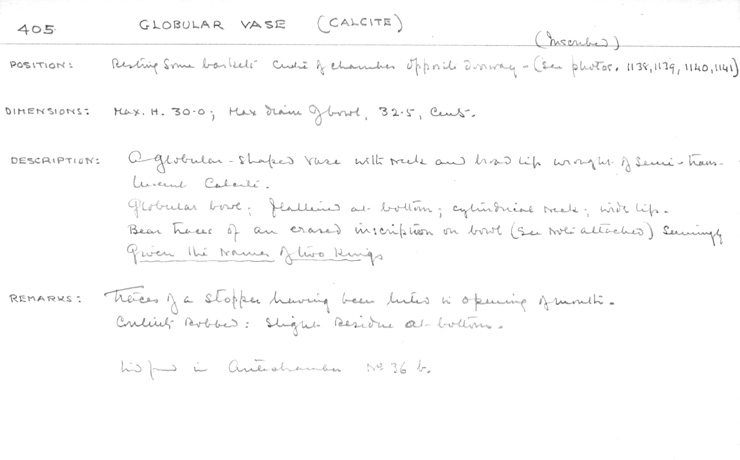 405 GLOBULAR VASE (CALCITE)
(Inscribed)
POSITION: Resting some baskets of chamber opposite doorway - (See photos. 1138, 1139, 1140, 1141)
DIMENSIONS: Max. H. 30.0; Max diam of bowl, 32.5, Cents.
DESCRIPTION: A globular-shaped vase with neck and broad lip wrought of semi-trans-
lucent Calcite.
Globular bowl; flattened at bottom; cylindrical neck; wide lip.
Bear traces of an erased inscription on bowl (See Note attached) seemingly
Given the Names of two Kings
REMARKS: Traces of a stopper having been luted in opening of mouth.
Contents Robbed: slight Residue at bottom.
Lid found in Antechamber No 36 b.